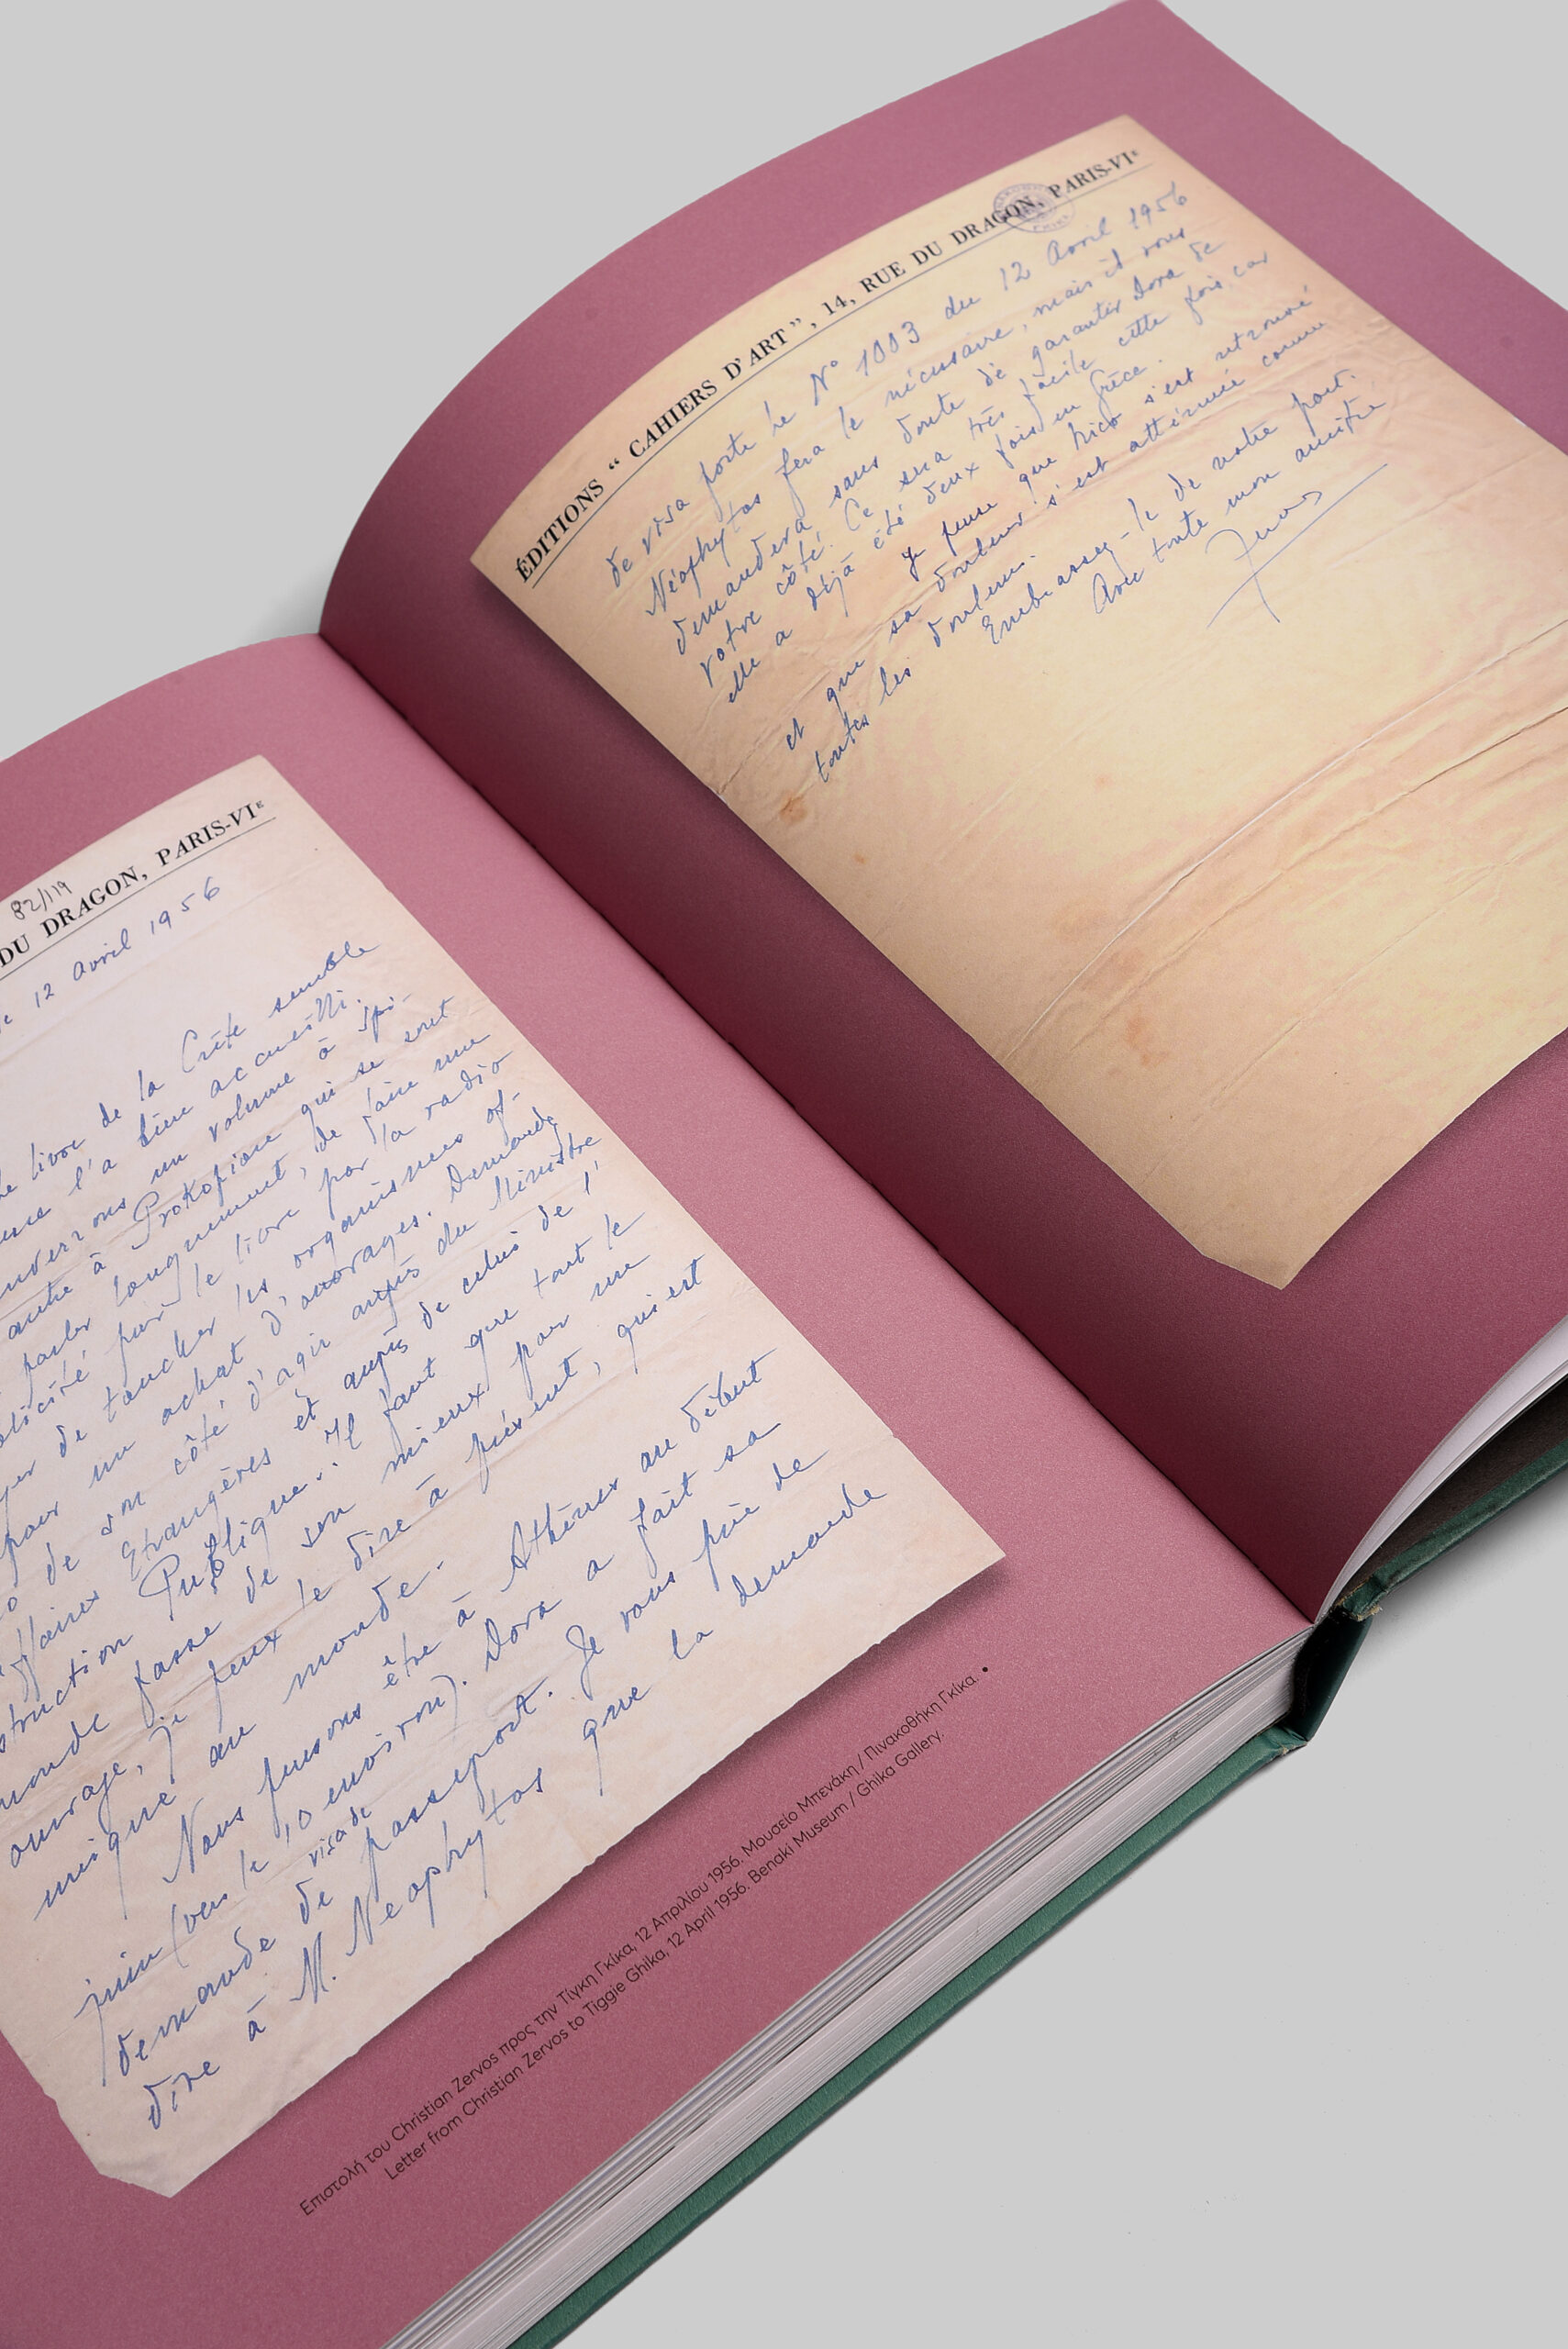 82/119
DU DRAGON, PARIS-VIᴱ
12 Avril 1956
livre de la Crète semble
l'a bien accueilli.
un volume à Spi-
autre à Prokopiou qui se sont
parler longuement, de faire une
pour le livre, par la radio
de toucher les organismes of-
pour un achat d'ouvrages. Demande
de son côté d'agir auprès du Ministre
Etrangères et auprès de celui de l'
Publique. Il faut que tout le
monde fasse de son mieux pour un
ouvrage, je peux le dire à présent, qui est
unique au monde.
Nous pensons être à Athènes au début
juin (vers le 10 environ). Dora a fait sa
visa de
demande de passeport. Je vous prie de
dire à M. Neophytos que la demande
Επιστολή του Christian Zervos προς την Τίγκη Γκίκα, 12 Απριλίου 1956. Μουσείο Μπενάκη / Πινακοθήκη Γκίκα. •
Letter from Christian Zervos to Tiggie Ghika, 12 April 1956. Benaki Museum / Ghika Gallery.
ÉDITIONS “ CAHIERS D'ART ”, 14, RUE DU DRAGON, PARIS-VIᴱ
de visa porte le N° 1003 du 12 Avril 1956
Néophytos fera le nécessaire, mais il vous
demandera sans doute de garantir Dora de
votre côté. Ce sera très facile cette fois, car
elle a déjà été deux fois en Grèce.
Je pense que Nico s'est retrouvé
et que sa douleur s'est atténuée comme
toutes les douleurs.
Embrassez-le de notre part.
Avec toute mon amitié
Zervos